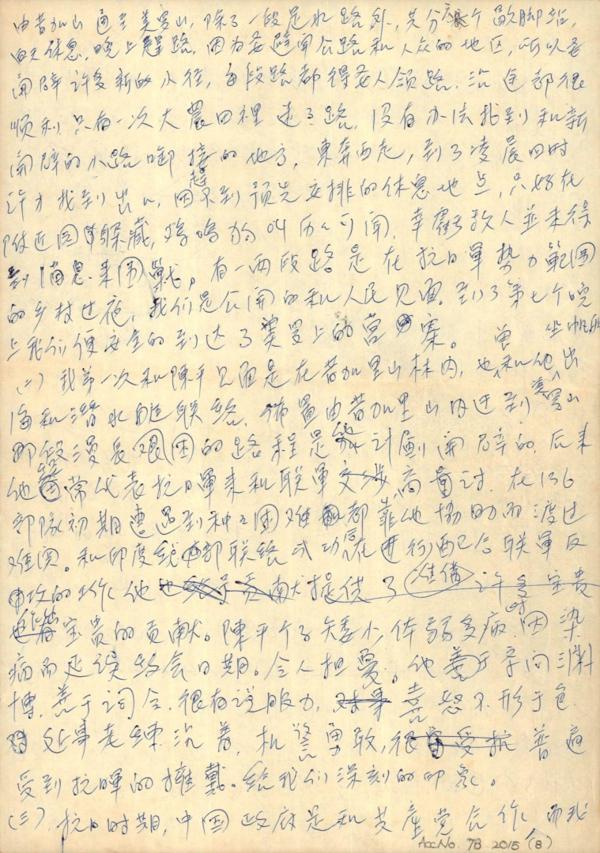 由昔加里山通至美罗山,除了一段是水路外,共分六个歇脚站,
白天休息,晚上赶路,因为要避开公路和人众的地区,所以要
开辟许多新的小径,每段路都得要人领路,沿途都很
顺利,只有一次大农田裡迷了路,没有办法找到和新
开辟的小路啣接的地方,東奔西走,到了凌晨四时
许才找到出口,因赶不到预先安排的休息地点,只好在
附近园里躲藏,鸡鸣狗叫历历可闻,幸虧敌人並未得
到消息来围剿。有一两段路是在抗日軍势力範围
的乡村过夜,我们是公開的和人民见面。到了第七个晚
上我们便安全的到达了美罗上的营寨。
(二)我第一次和陳平见面是在昔加里山林内,也曾和他坐帆船出
海和潜水艇连联络,佈置由昔加里山内迁到美罗山
那段漫長艰困的路程是他计劃開辟的,后来
他常代表抗日軍来和联軍交涉,商量讨,在136
部队初期遭遇到种种困难都靠他協助而渡过
难関。和印度総部联络成功后在进行配合联軍反
攻的工作他提供了準備许多宝贵
宝贵的贡献。陳平个子矮小,体弱多病,时因染
病而延误约会日期。令人担憂。他善于辛间
博,善于词令,很有说服力,喜怒不形于色
处事老練沉着,机警勇敢,很普遍
受到抗軍的擁戴。给我们深刻的印象。
(三)抗日时期,中国政府是和共産党合作,而我
Acc No. 78 2015 (8)